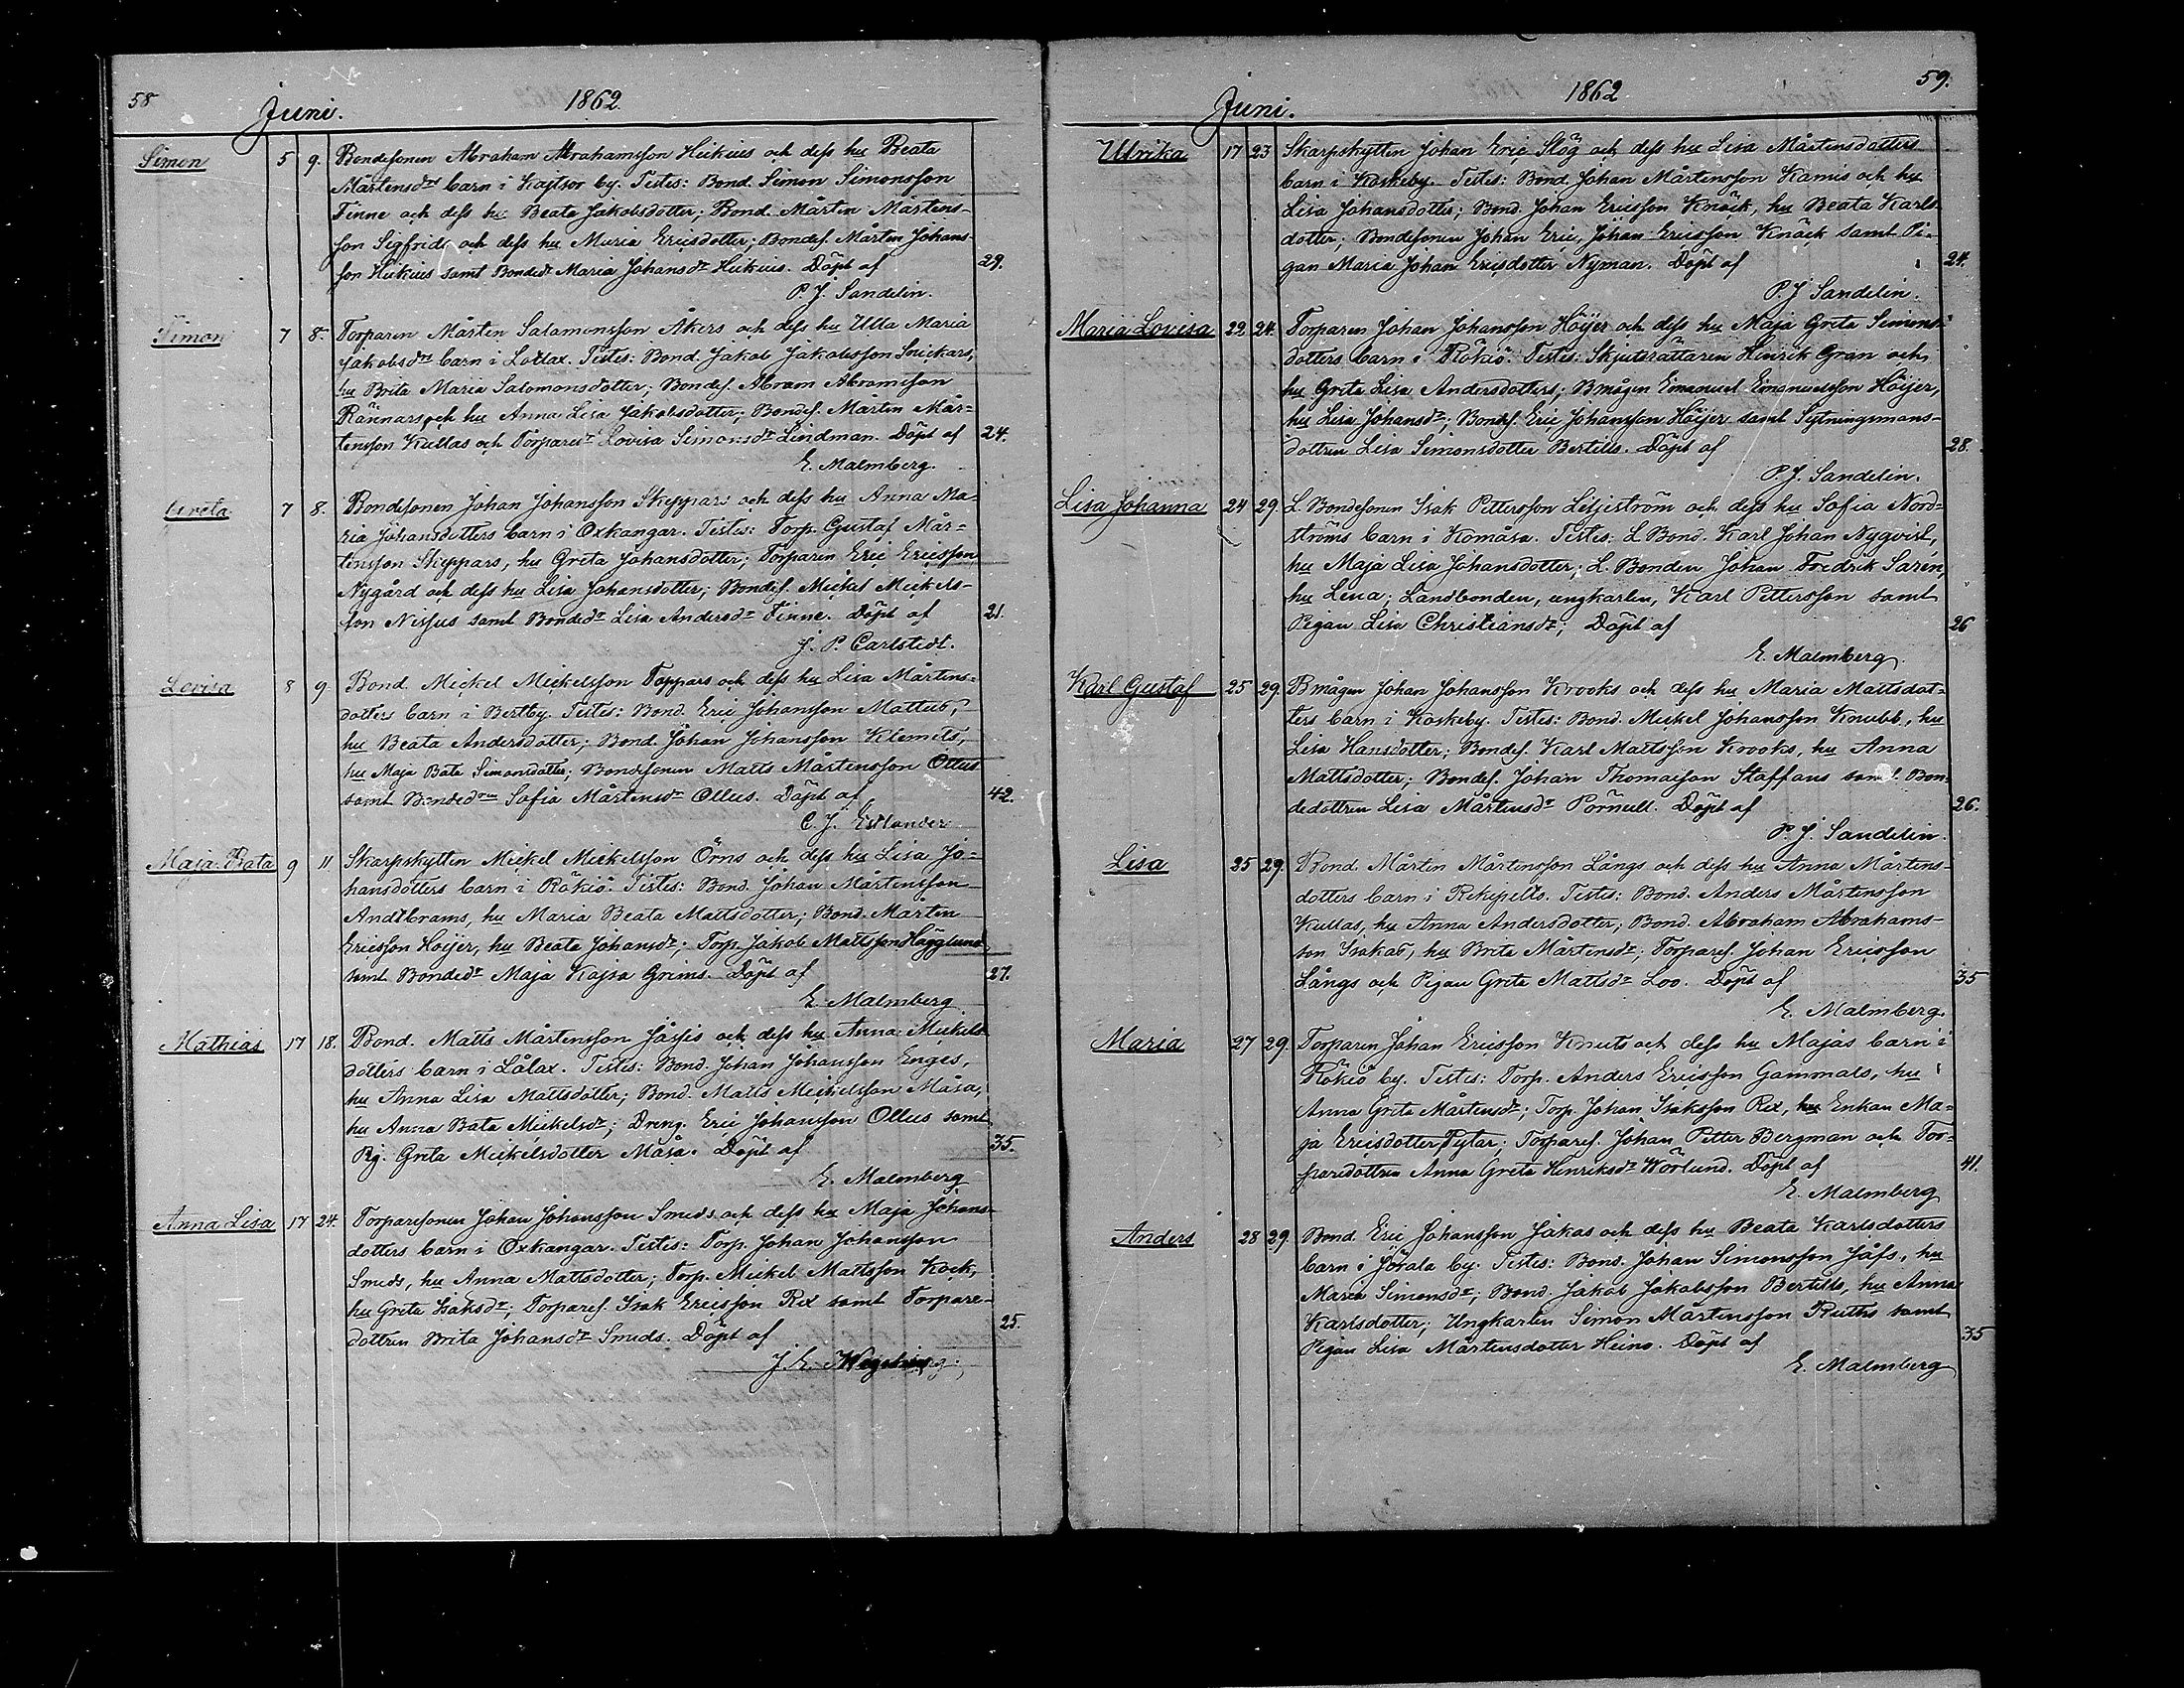 58
Juni.
1862.
Simon 5 9. Bondesonen Abraham Abrahamsson Heikius och dess hu Beata
Mårtensdrs barn i Kajtsor by. Testes: Bond. Simon Simonsson
Finne och dess hu Beata Jakobsdotter; Bond. Mårten Mårtens-
son Sigfrids och dess hu Maria Ericsdotter; Bondes. Mårten Johans-
son Heikius samt Bondedr Maria Johansdr Heikius. Döpt af 29.
P. J. Sandelin.
Simon 7 8. Torparen Mårten Salomonsson Åkers och dess hu Ulla Maria
Jakobsdrs barn i Lotlax. Testes: Bond. Jakob Jakobsson Snickars,
hu Brita Maria Salomonsdotter; Bondes. Abram Abramsson
Rännars och hu Anna Lisa Jakobsdotter; Bondes. Mårten Mår-
tensson Kullas och Torparedr Lovisa Simonsdr Lindman. Döpt af 24.
E. Malmberg.
Greta 7 8. Bondesonen Johan Johansson Skeppars och dess hu Anna Ma-
ria Johansdotters barn i Oxkangar. Testes: Torp. Gustaf Mår-
tensson Skeppars, hu Greta Johansdotter; Torparen Eric Ericsson
Nygård och dess hu Lisa Johansdotter; Bondes. Mickel Mickels-
son Nissus samt Bondedr Lisa Andersdr Finne. Döpt af 21.
J. P. Carlstedt.
Lovisa 8 9. Bond. Mickel Mickelsson Toppars och dess hu Lisa Mårtens-
dotters barn i Bertby. Testes: Bond. Eric Johansson Mattus,
hu Beata Andersdotter; Bond. Johan Johansson Klemets,
hu Maja Bata Simonsdotter; Bondesonen Matts Mårtensson Ollus
samt Bondedren Sofia Mårtensdr Ollus. Döpt af 42.
C. J. Estlander
Maja Bata 9 11 Skarpskytten Mickel Mickelsson Örns och dess hu Lisa Jo-
hansdotters barn i Rökiö. Testes: Bond. Johan Mårtensson
Andtbrams, hu Maria Beata Mattsdotter; Bond. Mårten
Ericsson Höijer, hu Beata Johansdr; Torp. Jakob Mattsson Hägglund
samt Bondedr Maja Kajsa Grims. Döpt af 27.
E. Malmberg
Mathias 17 18. Bond. Matts Mårtensson Jåssis och dess hu Anna Mickels-
dotters barn i Lålax. Testes: Bond. Johan Johansson Enges,
hu Anna Lisa Mattsdotter; Bond. Matts Mickelsson Måsa,
hu Anna Bata Mickelsdr; Dreng. Eric Johansson Ollus samt
Pig. Greta Mickelsdotter Måsa. Döpt af 35.
E. Malmberg
Anna Lisa 17 24. Torparesonen Johan Johansson Smeds och dess hu Maja Johans-
dotters barn i Oxkangar. Testes: Torp. Johan Johansson
Smeds, hu Anna Mattsdotter; Torp. Mickel Mattsson Kock,
hu Greta Isaksdr; Torpares. Isak Ericsson Rex samt Torpare-
dottren Brita Johansdr Smeds. Döpt af 25.
J. E.
59.
Juni.
1862
Ulrika 17 23 Skarpskytten Johan Eric Slög och dess hu Lisa Mårtensdotters
barn i Koskeby. Testes: Bond. Johan Mårtensson Kamis och hu
Lisa Johansdotter; Bond. Johan Ericsson Knäck, hu Beata Karls-
dotter; Bondesonen Johan Eric, Johan Ericsson Knäck samt Pi-
gan Maria Johan Ericsdotter Nyman. Döpt af 24.
P. J. Sandelin.
Maria Lovisa 22. 24. Torparen Johan Johansson Höijer och dess hu Maja Greta Simons-
dotters barn i Rökiö. Testes: Skjutsrättaren Hinrik Gran och
hu Greta Lisa Andersdotters; Bmågen Emanuel Emanuelsson Höijer,
hu Lisa Johansdr; Bondes. Eric Johansson Höijer samt Sytningsmans-
dottren Lisa Simonsdotter Bertills. Döpt af 28.
P. J. Sandelin.
Lisa Johanna 24 29 L. Bondesonen Isak Pettersson Liljeström och dess hu Sofia Nord-
ströms barn i Komåsa. Testes: L Bond. Karl Johan Nyqvist,
hu Maja Lisa Johansdotter; L. Bonden Johan Fredrik Sarén,
hu Lena; Landbonden, ungkarlen, Karl Pettersson samt
Pigan Lisa Christiansdr; Döpt af 26
E. Malmberg.
Karl Gustaf 25 29. Bmågen Johan Johansson Krooks och dess hu Maria Mattsdot-
ters barn i Koskeby. Testes: Bond. Mickel Johansson Knubb, hu
Lisa Hansdotter; Bondes. Karl Mattsson Krooks, hu Anna
Mattsdotter; Bondes. Johan Thomasson Staffans samt Bon-
dedottren Lisa Mårtensdr Pörnull. Döpt af 26.
P. J. Sandelin.
Lisa 25 29. Bond. Mårten Mårtensson Långs och dess hu Anna Mårtens-
dotters barn i Rekipelto. Testes: Bond. Anders Mårtensson
Kullas, hu Anna Andersdotter; Bond. Abraham Abrahams-
son Isakas, hu Brita Mårtensdr; Torpares. Johan Ericsson
Långs och Pigan Greta Mattsdr Loo. Döpt af 35
E. Malmberg.
Maria 27 29. Torparen Johan Ericsson Knuts och dess hu Majas barn i
Rökiö by. Testes: Torp. Anders Ericsson Gammals, hu
Anna Greta Mårtensdr; Torp. Johan Isaksson Rex, hu Enkan Ma-
ja Ericsdotter Pytar; Torpares. Johan Petter Bergman och Tor-
paredottren Anna Greta Henriksdr Wörlund. Döpt af 41.
E. Malmberg
Anders 28 29 Bond. Eric Johansson Jakas och dess hu Beata Karlsdotters
barn i Jörala by. Testes: Bond. Johan Simonsson Jåfs, hu
Maria Simonsdr; Bond. Jakob Jakobsson Bertills, hu Anna
Karlsdotter; Ungkarlen Simon Mårtensson Ruths samt
Pigan Lisa Mårtensdotter Heino. Döpt af 35
E. Malmberg